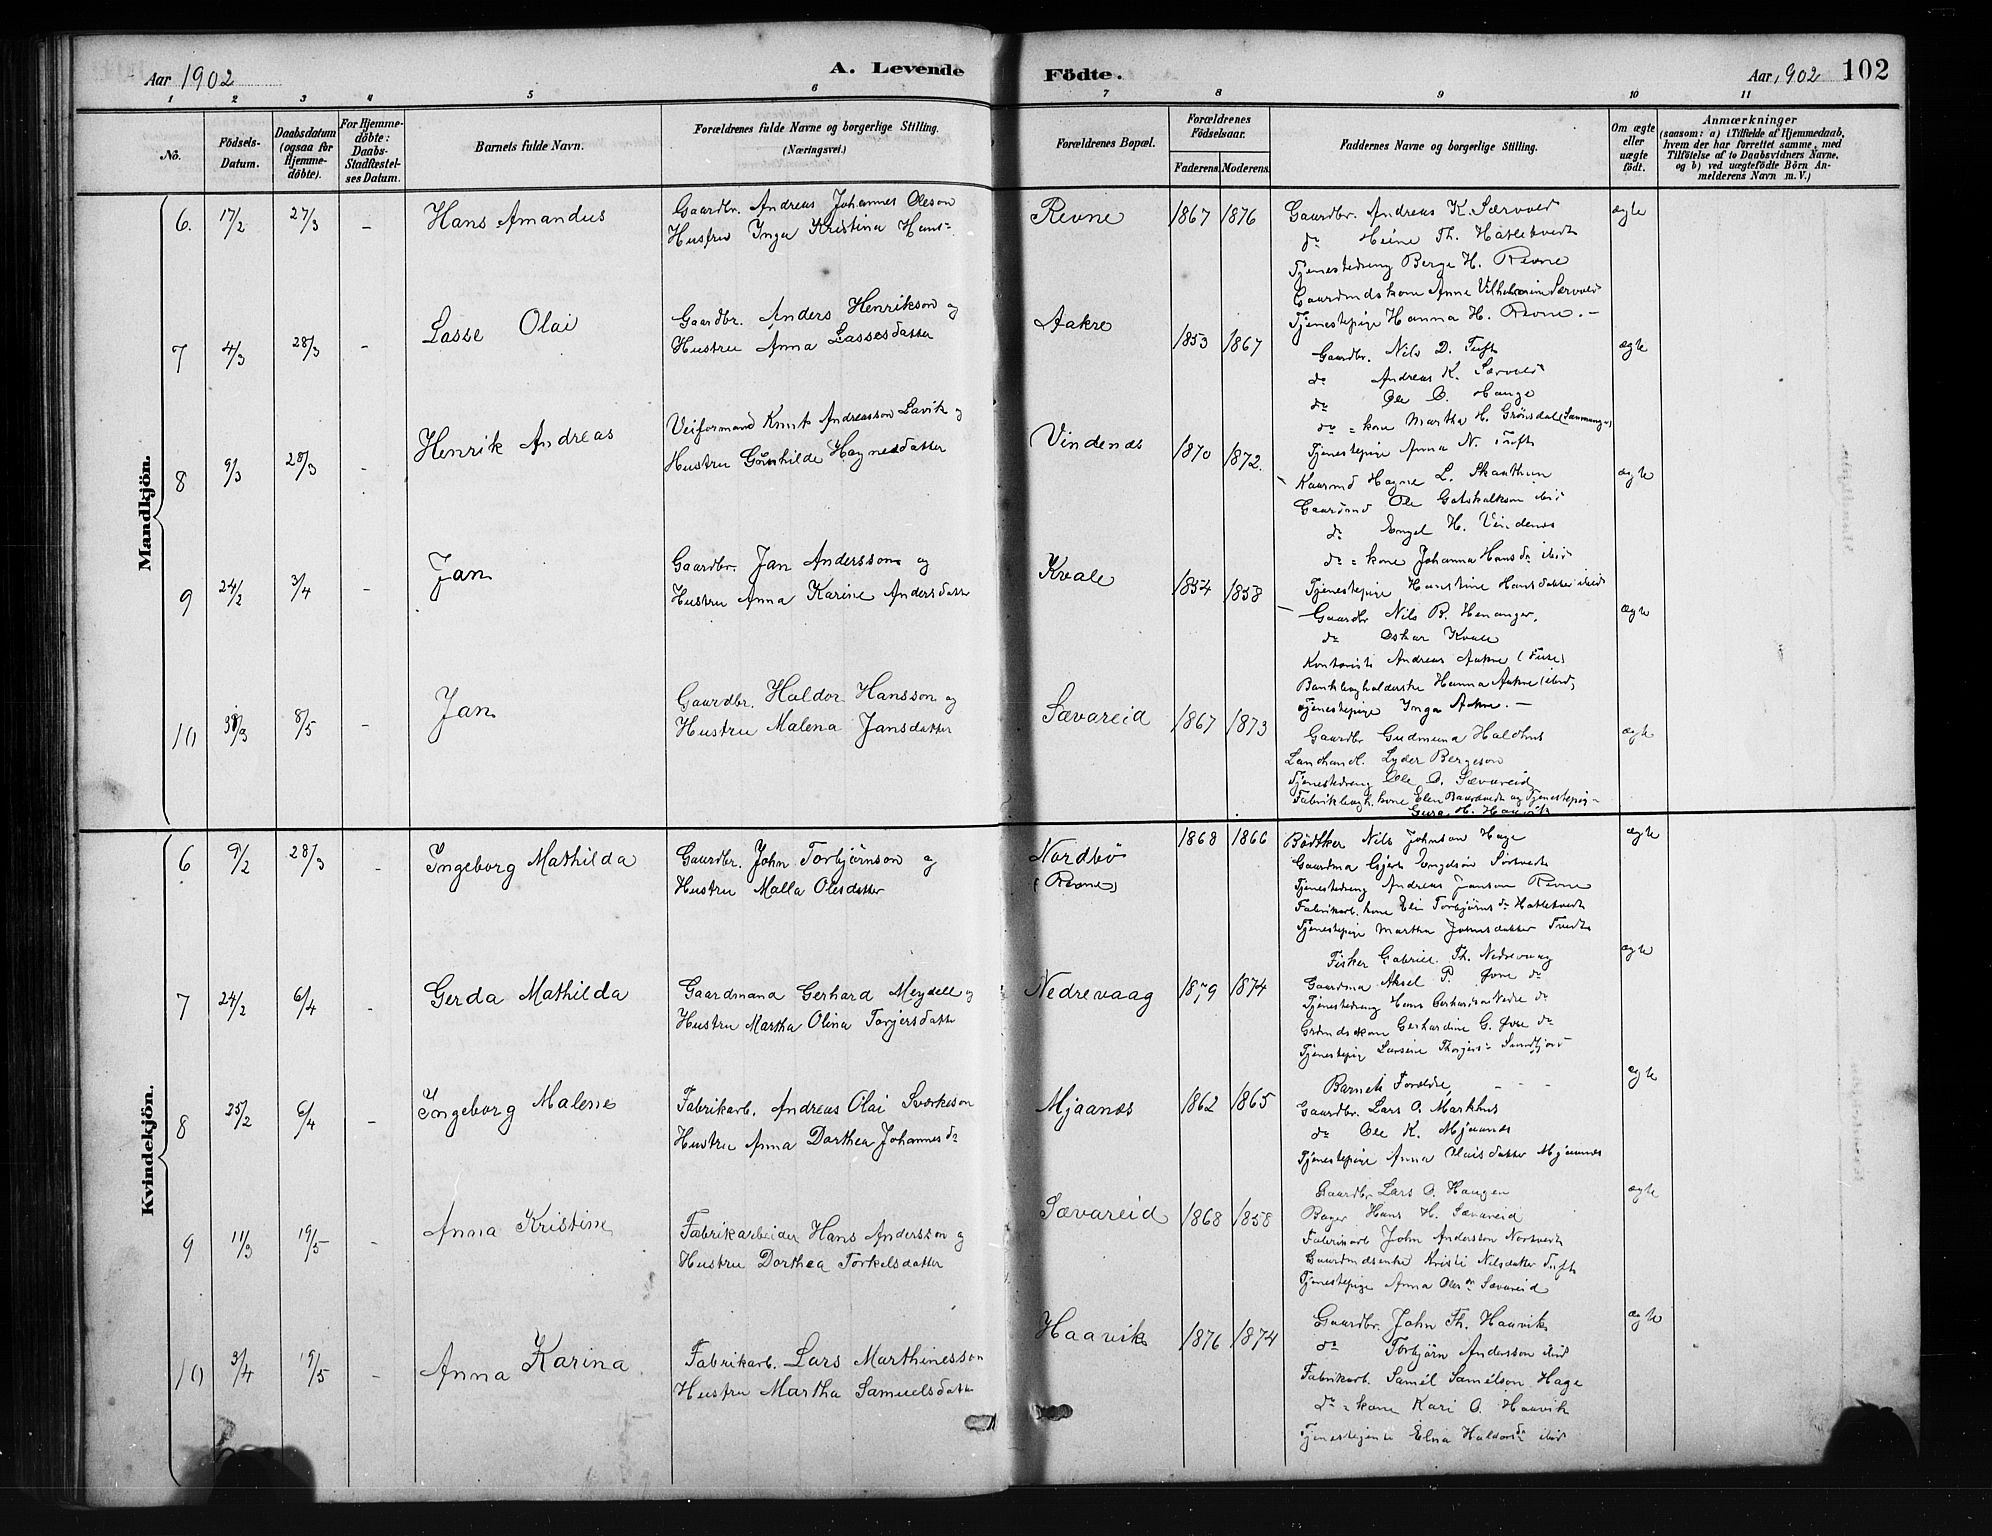 Aar 1902
A. Levende
Födte.
Aar 1902
102
1 2 3 4 5 6 7 8 9 10 11
No.
Födsels-
Datum.
Daabsdatum
(ogsaa for
Hjemme-
döbte).
For Hjemme-
döbte:
Daabs-
Stadfæstel-
ses Datum.
Barnets fulde Navn.
Forældrenes fulde Navne og borgerlige Stilling.
(Næringsvei.)
Forældrenes Bopæl.
Forældrenes
Födselsaar.
Faderens.
Moderens.
Faddernes Navne og borgerlige Stilling.
Om ægte
eller
uægte
født.
Anmærkninger
(saasom: a) i Tilfælde af Hjemmedaab,
hvem der har forrettet samme, med
Tilföielse af to Daabsvidners Navne,
og b) ved uægtefödte Börn An-
melderens Navn m. V.)
Mandkjön.
6. 17/2 27/3 - Hans Amandus
Gaardbr. Andreas Johannes Oleson
Hustru Inga Kristina Hans-
Revne 1867 1876
Gaardbr. Andreas K. Særvold
do Heine Th. Hatlekvedt
Tjenestedreng Berge H. Revne
Gaardmdskone Anne Vilhelmine Særvold
Tjenestepige Hanna H. Revne. -
ægte
7 4/3 28/3 - Lasse Olai
Gaardbr. Anders Henrikson og
Hustru Anna Lassesdatter
Aakre 1853 1867
Gaardbr. Nils D. Tuft
do Andreas K. Særvold
do Ole O. Hauge
do = kone Martha H. Grönsdal
Tjenestepige Anna N. Tuft
ægte
8 9/3 28/3 - Henrik Andreas
Veiformand Knut Andreasson Lavik og
Hustru Gunhilde Hagnesdatter
Vindenes 1870 1872.
Kaarmd Hagne L. Skaathun
Gaardmd Ole Gotskalkson ibid
do Engel H. Vindenes
do = kone Johanna Hansdr ibid
Tjenestepige Hanstine Hansdatter ibid
ægte
9 24/2 3/4 - Jan
Gaardbr. Jan Andersson og
Hustru Anna Karine Andersdatter
Kvale 1854 1858
Gaardbr Nils B. Henanger,
do Oskar Kvale
Kontorist Andreas Aakre (Fuse)
Hanna Aakre (ibid)
Tjenestepige Inga Aakre. -
ægte
10 8/5 - Jan
Gaardbr. Haldor Hansson og
Hustru Malena Jansdatter
Sævareid 1867 1873
Gaardbr Gudmund Haldhus
Landhandl. Lyder Bergeson
Tjenestedreng Ole O. Sævareid
ægte
Kvindekjön.
6 9/2 28/3 - Ingeborg Mathilda
Gaardbr. John Torbjörnson og
Hustru Malla Olesdatter
Nordbö
(Revne)
1868 1866
Bödtker Nils Johnson Hage
Gaardma Gjert Engelsön Sörtvedt
Tjenestedreng Andreas Janson Revne
Fabrikarb. kone Eli Torbjörnsdr Hatlekvedt
Tjenestepige Martha Johnsdatter Tvedt
ægte
7 24/2 6/4 - Gerda Mathilda
Gaardmand Gerhard Meydell og
Hustru Martha Olina Torjersdatter
Nedrevaag 1879 1874
Fisker Gabriel Th. Nedrevaag
Gaardma Aksel P. Øvre do
Tjenestedreng Hans Gerhardson Nedre do
Grdmdskone Gerhardine G. Øvre do
Tjenestepig Larsine Sundfjord
ægte
8 25/2 6/4 - Ingeborg Malene
Fabrikarb. Andreas Olai Sverkeson
Hustru Anna Dorthea Johannesdr
Mjaanes 1862 1865
Barnets Forældre, - - -
Gaardbr. Lars O. Markhus
do Ole K. Mjaanes
Tjenestepige Anna Olaisdatter Mjaanes
ægte
9 11/3 19/5 - Anna Kristine
Fabrikarbeider Hans Andersson og
Hustru Dorthea Torkelsdatter
Sævareid 1868 1858
Gaardbr Lars O. Haugen
Bager Hans H. Sævareid
Fabrikarb John Andersson Nortvedt
Gaardmdsenke Kristi Nilsdatter Tuft
Tjenestepige Anna Olesdr Sævareid
ægte
10 3/4 19/5 - Anna Karina
Fabrikarb. Lars Marthinesson
Hustru Martha Samuelsdatter
Haavik 1876 1874
Gaardbr. John Th. Haavik
do Torbjörn Andersson ibid
Fabrikarb. Samél Samélson Hage
do = kone Kari O. Haavik
Tjenestejente Elna Haldorsdr ibid
ægte